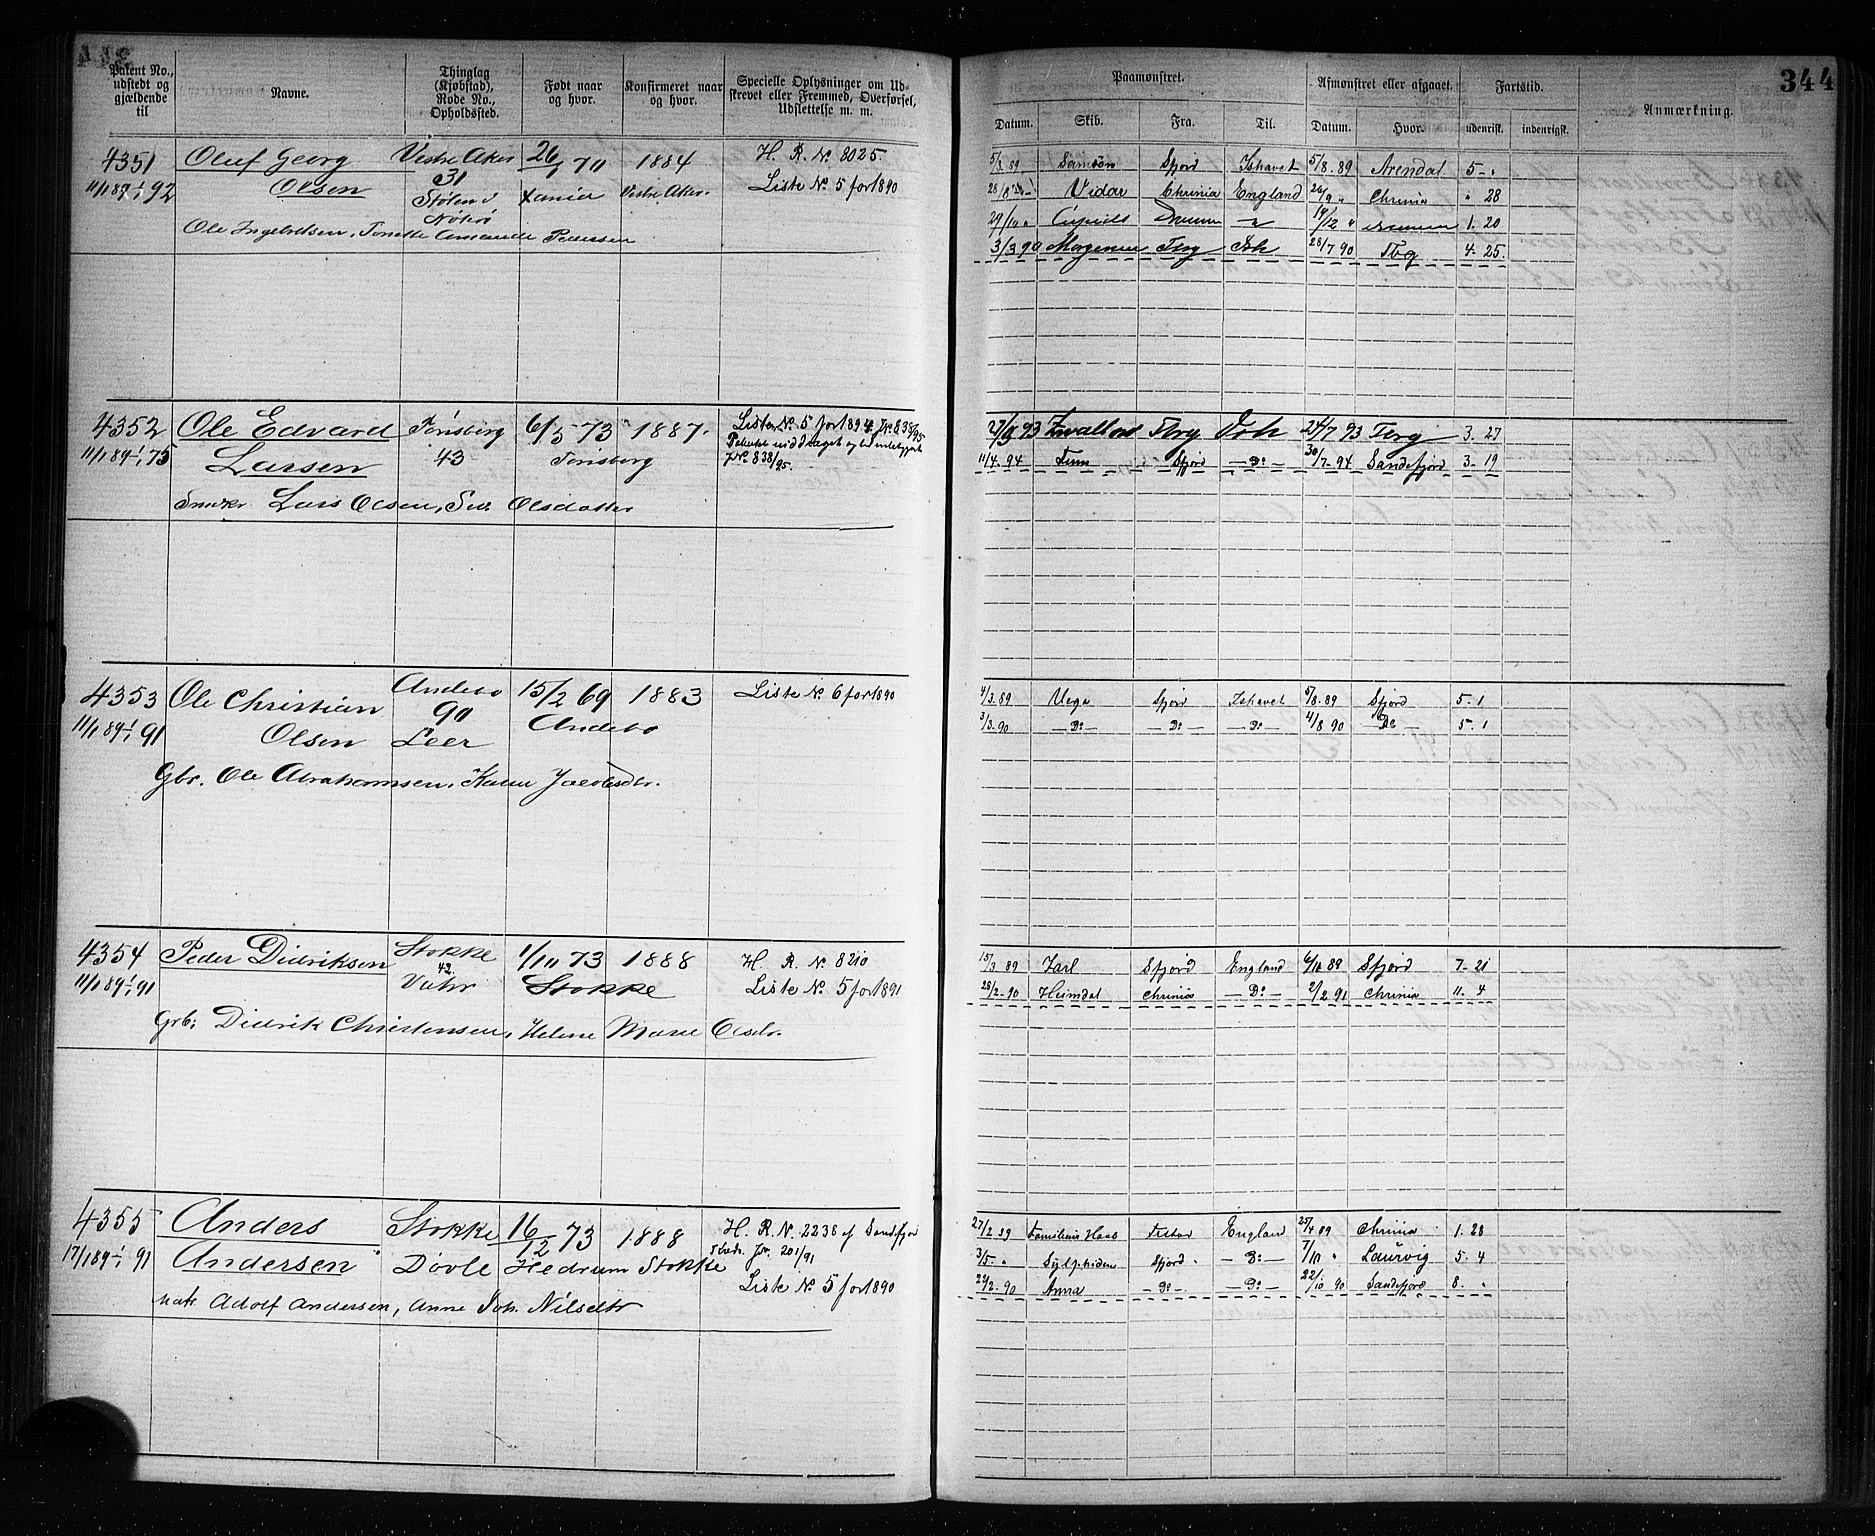 344
Patent No., udstedt og gjældende til
Navne.
Thinglag (Kjøbstad), Rode No., Opholdssted.
Født naar og hvor.
Konfirmeret naar og hvor.
Specielle Oplysninger om Udskrevet eller Fremmed, Overførsel, Udslettelse m. m.
Paamønstret.
Afmønstret eller afgaaet.
Fartstid.
Anmærkning.
Datum. Skib. Fra. Til. Datum. Hvor. udenrigs. indenrigs.
4351 Oluf Georg Vestre Aker 26/1 70 1884 H. R. No. 8025.
11/1 89-1/1 92 Olsen 31 Xania Vestre Aker. Liste No. 5 for 1890
Stølen v
Nøtrø
Ole Ingebretsen, Tonette Amande Pedersen
5/3 89 Samson Sfjord Ishavet 5/8.89 Arendal 5-"
Vidar Chrinia England 26/9 " Chrinia " 28
29/10 " Cupido 19/12 " 1. 20
3/3 90 Magenen Tbrg Ish 28/7 90 Tbg 4- 25.
4352 Ole Edvard Tønsberg 6/5 73 1887.
11/1 89-1/1 75 Larsen 43 Tønsberg
Liste No. 5 for 1894
J No. 838/95.
Snedkr Lars Olsen, Olsdatter
27/3 93 Tbrg Ish 24/7 93 Tbrg 3. 27
11/4. 94 Sfjord —Do— 30/7-94 Sandefjord 3- 19
4353 Ole Christian Andebo 15/2 69 1883 Liste No. 6 for 1890
11/1 89-1/1 91 Olsen 90 Andebo
Leer
Gbr. Ole Abrahamsen, Karen Jacobsdtr.
4/3.89 Vega Sfjord Ishavet 5/8.89 Sfjord 5-1
3/3.90 —Do— —Do— —Do— 4/8 90 Do 5-1
4354 Peder Didriksen Stokke 1/10 73 1888 H. R. No. 8210
11/1 89-1/1 91 42. Stokke Liste No. 5 for 1891
Grb: Didrik Christensen, Helene Marie Olsdr.
15/3 89 Jarl Sfjord England 6/10 89 Sfjord 7-21
28/2-90 Heimdal Chrinia —Do— 2/2 91 Chrinia 11. 4
4355 Anders Stokke 16/12 73 1888 H. R. N. 2238 af Sandefjor
17/1 89-1/1 91 Andersen Døvle Hedrum Stokke
Jr. 201/91
Liste No. 5 for 1890
Matr. Adolf Andersen, Anne Joh. Nilsdtr
27/2 89 England 25/4 89 Chrinia 1. 28
3/5- " Sylphiden Sfjord. —Do— 7/10 " Laurvig 5. 4
24/2-90 Anna —Do— —Do— 22/10 90 Sandefjord 8. "